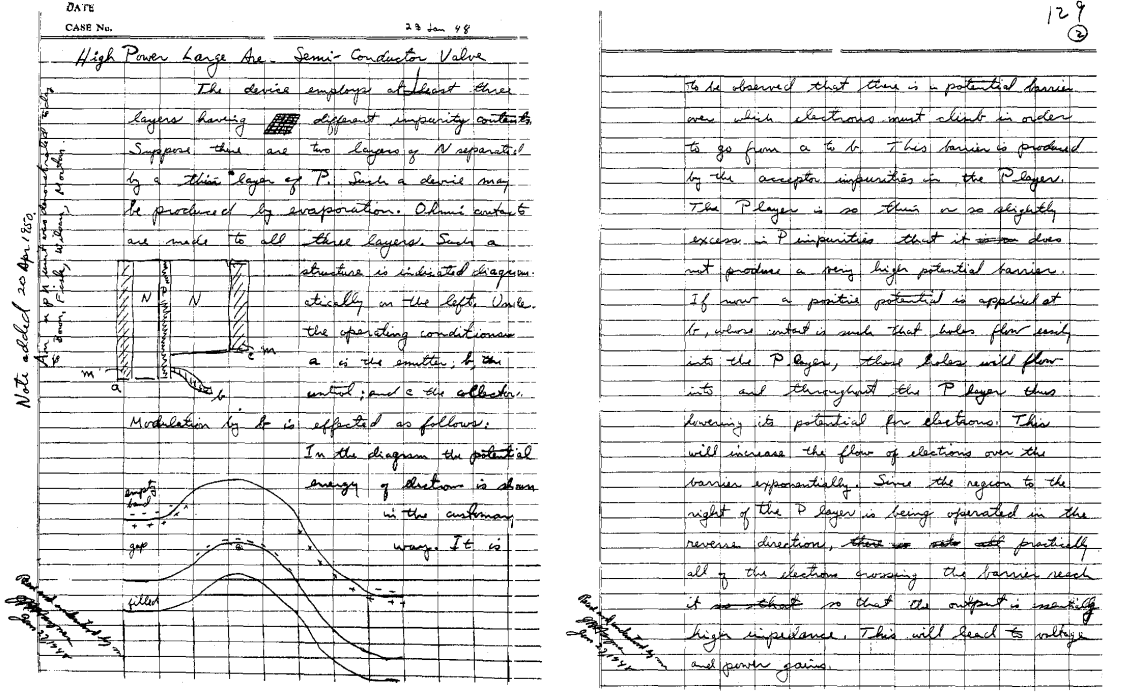 DATE
CASE No. 23 Jan 48
High Power Large Are_ Semi-Conductor Valve
The device employs at least three
layers having different impurity contents.
Suppose there are two layers of N separated
by a thin layer of P. Such a device may
be produced by evaporation. Ohmic contacts
are made to all three layers. Such a
structure is indicated diagram-
atically on the left. Under
the operating conditions
a is the emitter; b, the
control; and c the collector.
Modulation by b is effected as follows:
In the diagram the potential
energy of electrons is shown
in the customary
way. It is
N
P
N
m
a
b
c
m
empty
band
gap
filled
Note added 20 Apr 1950.
An n p n unit was demonstrated
to Bown, Fisk, Wilson, Morton
Read and understood by me
Jan 27, 1948
129
2
to be observed that there is a potential barrier
over which electrons must climb in order
to go from a to b. This barrier is produced
by the acceptor impurities in the P layer.
The P layer is so thin or so slightly
excess in P impurities that it does
not produce a very high potential barrier.
If now a positive potential is applied at
b, whose contact is such that holes flow easily
into the P layer, these holes will flow
into and throughout the P layer thus
lowering its potential for electrons. This
will increase the flow of electrons over the
barrier exponentially. Since the region to the
right of the P layer is being operated in the
reverse direction, practically
all of the electrons crossing the barrier reach
it so that the output is essentially
high impedance. This will lead to voltage
and power gains.
Read and understood by me
Jan 27, 1948